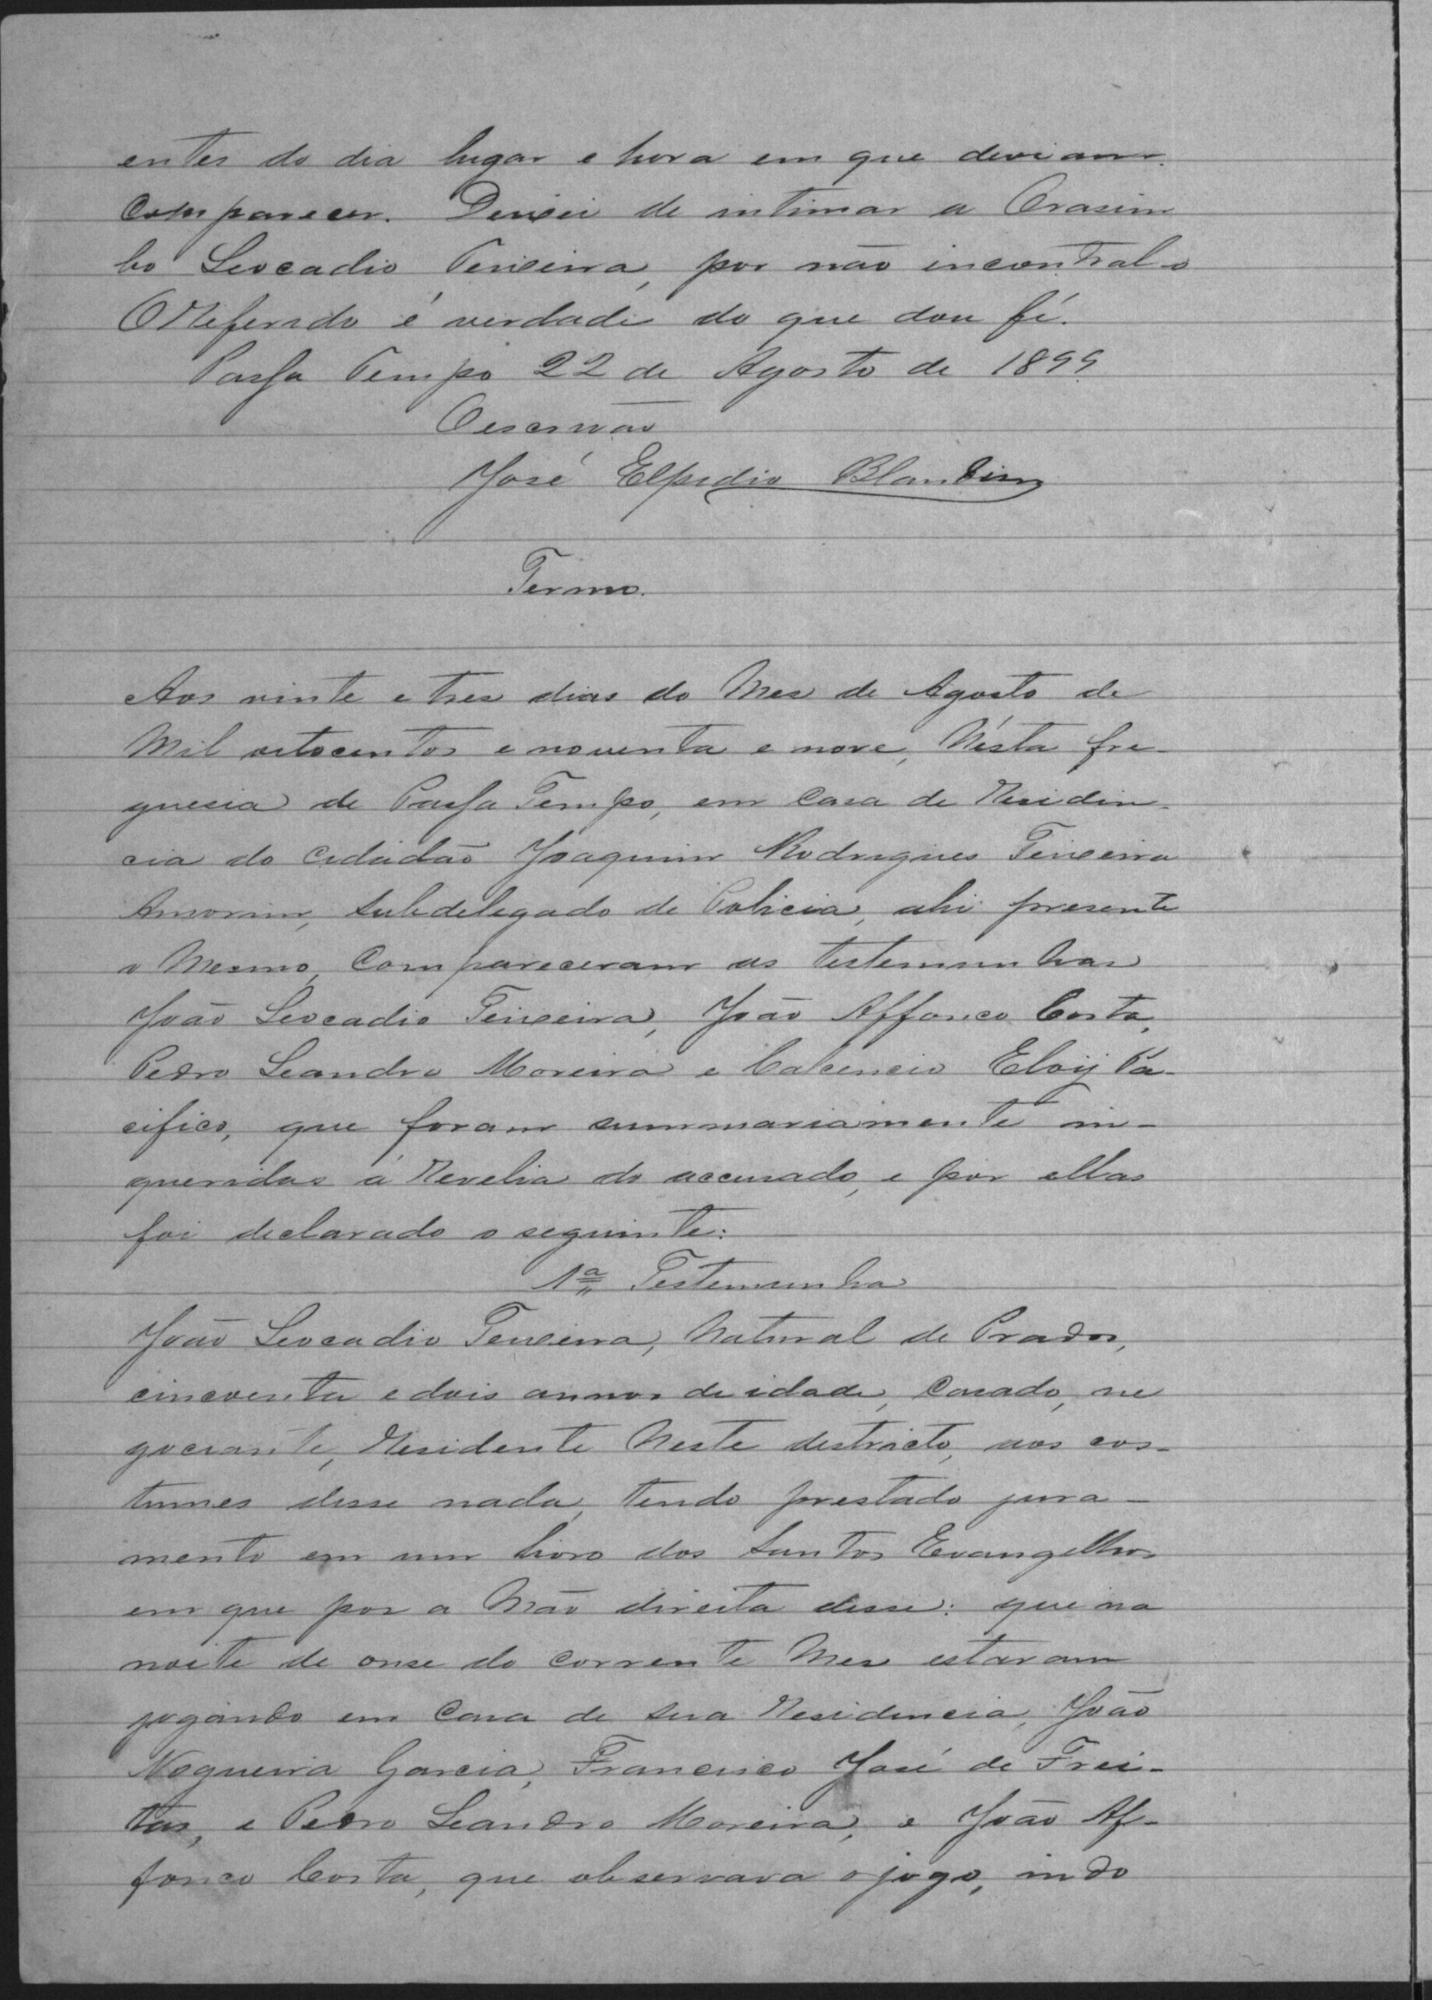 entes do dia lugar e hora em que deviam
Comparecer. Deixei de intimar a Orasim
bo Leocadio Teixeira, por não incontral-o
O Referido é verdade do que dou fé.
Passa Tempo 22 de Agosto de 1899
O escrivão
José Elpidio Blandim
Termo.
Aos vinte e tres dias do Mes de Agosto de
Mil oitocentos e noventa e nove, N'esta fre-
guesia de Passa Tempo, em Casa de Residin-
cia do Cidadão Joaquim Rodrigues Teixeira
Amorim, Subdelegado de Policia, ahi presente
o Mesmo, Compareceram as testemunhas
João Leocadio Teixeira, João Affonco Costa,
Pedro Leandro Moreira e Calencio Eloij Pa-
cifico, que foram summariamente in-
queridas á Revelia do accusado, e por ellas
foi declarado o seguinte:
1ª Testemunha
João Leocadio Teixeira, Natural de Prados,
cincoenta e dois annos de idade, Casado, ne
gociante, Residente Neste destricto, aos cos-
tumes disse nada, tendo prestado jura-
mento em um livro dos Santos Evangelhos
em que pos a Mão direita disse: que na
noite de onse do corrente Mes estavam
jogando em Casa de sua Residencia, João
Nogueira Garcia, Francisco José de Frei-
tas, e Pedro Leandro Moreira, e João Af-
fonco Costa, que observava o jogo, indo